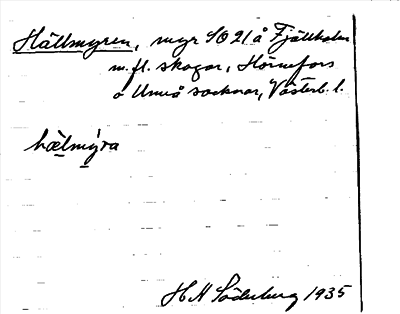 Hällmyren, myr SO 21 å Fjällhalm
m. fl. skogar, Hörnefors
o Umeå socknar, Västerb. l.
hæ̀lmýra
H N Söderberg 1935